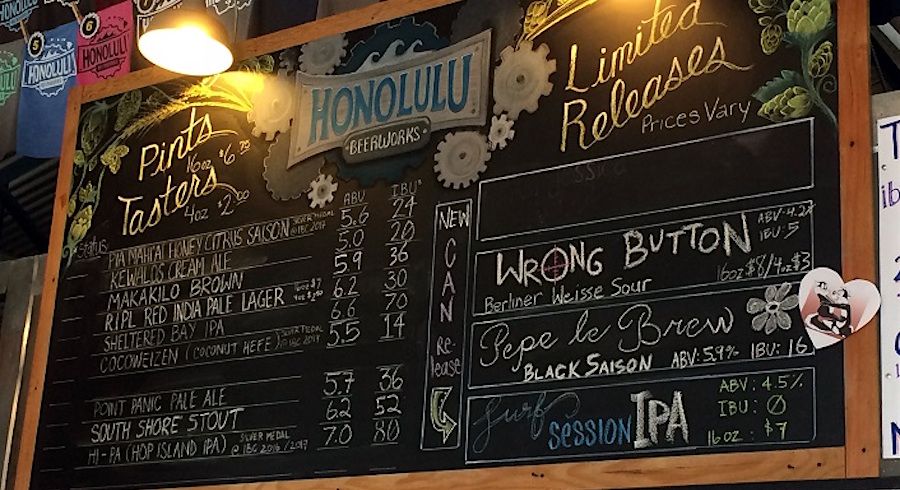 HONOLULU
BEERWORKS
Pints
16oz $6
Tasters
4oz $2.00
Status
ABV IBU'S
PIA MAHI'AI HONEY CITRUS SAISON SILVER MEDAL @ IBC 2017 5.6 24
KEWALOS CREAM ALE 5.0 20
MAKAKILO BROWN 5.9 36
RIPL RED INDIA PALE LAGER 6.2 30
SHELTERED BAY IPA 6.6 70
COCOWEIZEN (COCONUT HEFE) SILVER MEDAL @ IBC 2017 5.5 14
POINT PANIC PALE ALE 5.7 36
SOUTH SHORE STOUT 6.2 52
HI-PA (HOP ISLAND IPA) SILVER MEDAL @ IBC 2016/2017 7.0 80
NEW
CAN
Re-
lease
Limited
Releases
Prices Vary
WRONG BUTTON
ABV: 4.2%
IBU: 5
Berliner Weisse Sour
16oz $8/4oz $3
Pepe le Brew
BLACK SAISON ABV: 5.9% IBU: 16
Surf
session IPA
ABV: 4.5%
IBU: Ø
16oz: $7
HONOLULU
HONOLULU
5
6